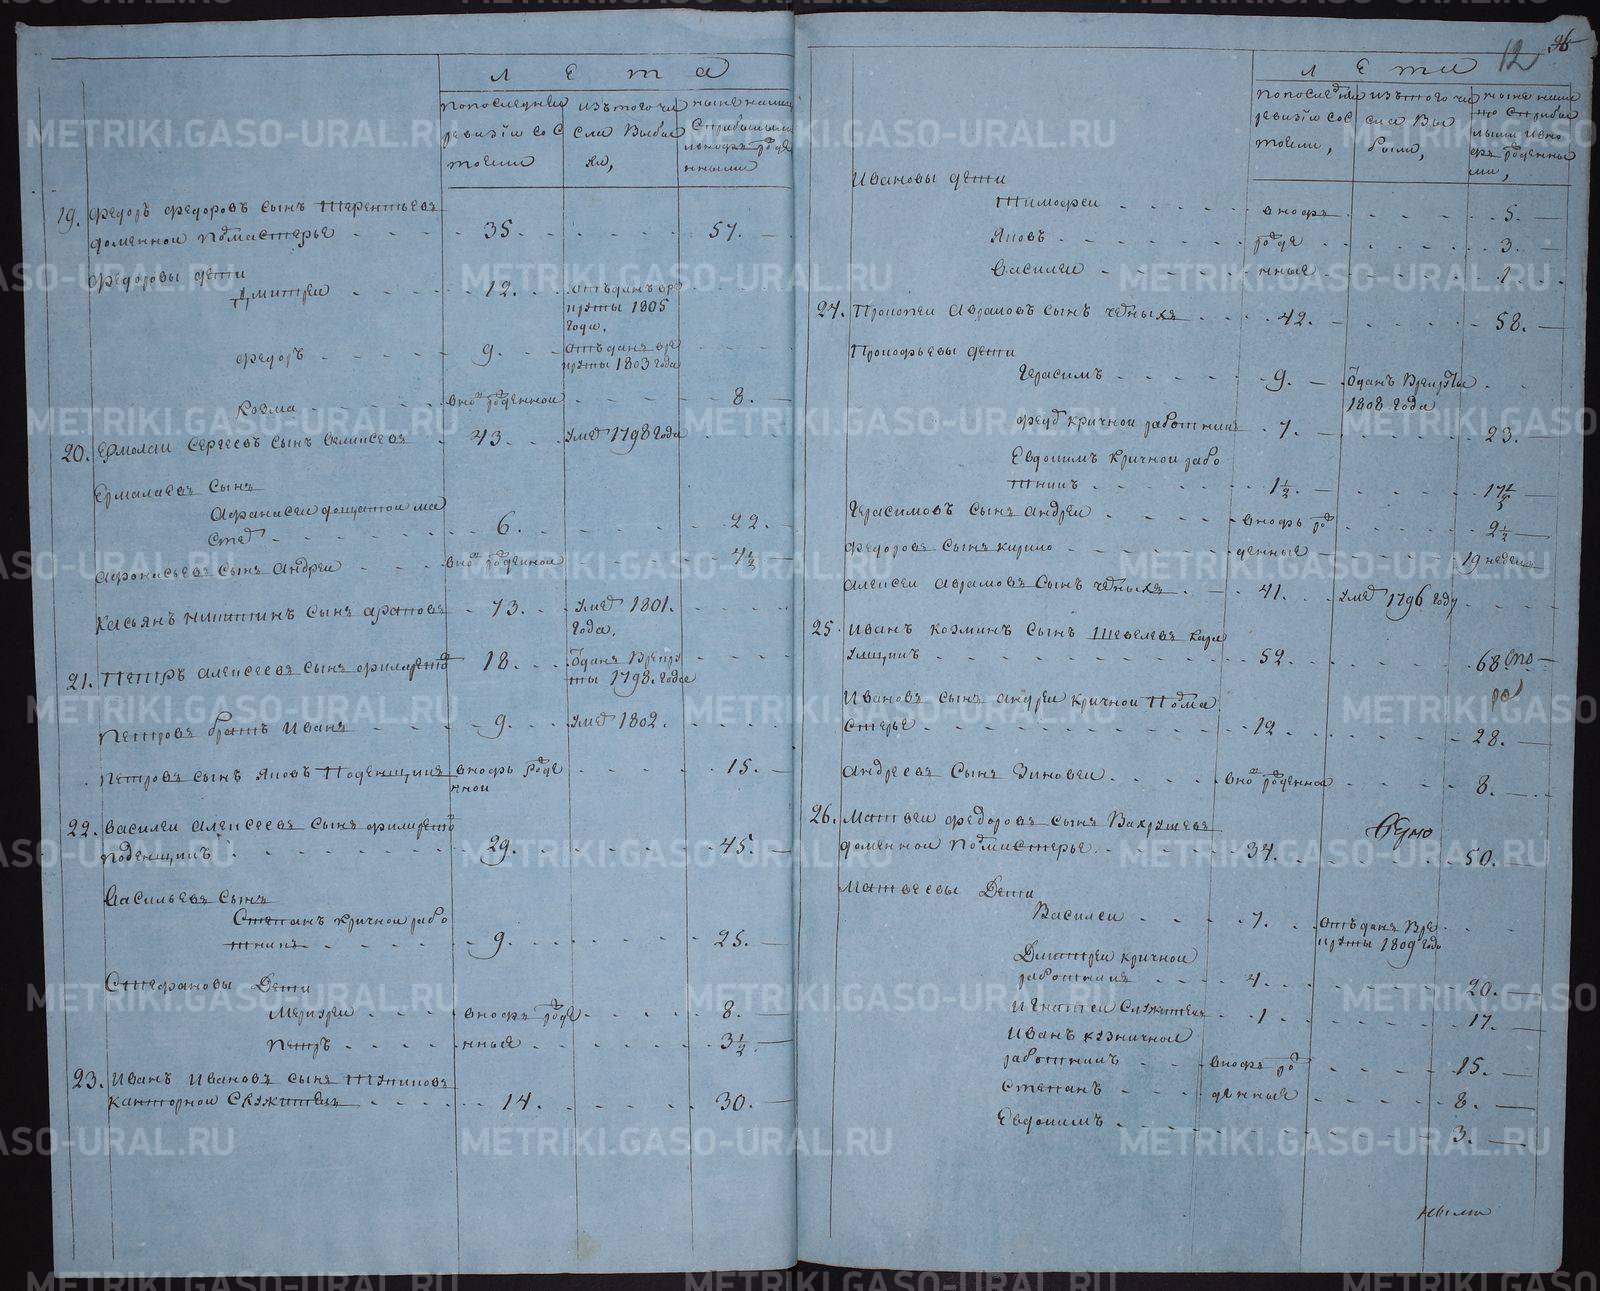 Лета
попоследней ревизiи состояли
изъ того числа выбыло,
ныне налицо с прибылыми и вновь рожденными
19. Федоръ Федоровъ сынъ Терентьевъ
доменной подмастерье - 35. - 51. -
Федоровы дети
Дмитреи - 12. - отъданъ врекруты 1805 года.
Федоръ - 9. - отъданъ врекруты 1803 года
Козма - вновь рожденной - 8. -
20. Ермолаи Сергеевъ сынъ - 43. - умеръ 1798 года
Ермалаевъ сынъ
Афанасеи дощатои мастеръ - 6. - 22. -
Афонасьевъ сынъ Андреи - вновь рожденной - 4 1/2
Касьянъ Никитинъ сынъ Араповъ - 73. - умеръ 1801. года.
21. Петръ Алексеевъ сынъ - 18. - отданъ врекруты 1798. года
Петровъ братъ Иванъ - 9. - умеръ 1802.
Петровъ сынъ Яковъ поденщикъ - вновь рожденной - 15. -
22. Василеи Алексеевъ сынъ
поденщикъ - 29. - 45. -
Васильевъ сынъ
Степанъ кричнои работникъ - 9. - 25. -
Стефановы дети
Меркуреи - вновь рожде - 8. -
Петръ - нные - 3 1/2 -
23. Иванъ Ивановъ сынъ
канторнои служитель - 14. - 30. -
12
Лета
попоследней ревизiи состояли,
изъ того числа выбыло,
ныне налицо с прибылыми и вновь рожденными,
Ивановы дети
Тимофеи - вновь - 5. -
Яковъ - рожде - 3. -
Василеи - нные - 1.
24. Прокопеи Аврамовъ сынъ Черныхъ - 42. - 58. -
Прокофьевы дети
Герасимъ - 9. - отданъ врекруты 1808. года
Федоръ кричнои работникъ - 7. - 23. -
Евдокимъ кричнои работникъ - 1 1/2. - 17 1/2 -
Герасимовъ сынъ Андреи - вновь рож - 2 1/2 -
Федоровъ сынъ Кирило - денные - 19 недель
Алексеи Аврамовъ сынъ Черныхъ - 41. - умеръ 1796 году
25. Иванъ Козминъ сынъ Шевелевъ караульщикъ - 52. - 68.
Ивановъ сынъ Андреи кричнои подмастерье - 12 - 28. -
Андреевъ сынъ Зиновеи - вновь рожденной - 8. -
26. Матвеи Федоровъ сынъ Вахрушевъ
доменнои подмастерье - 34. - 50. -
Матвеевы дети
Василеи - 7. - отъданъ врекруты 1809 года
Дмитреи кричнои работникъ - 4. - 20. -
Игнатеи служитель - 1 - 17. -
Иванъ кузничнои работникъ - вновь ро - 15. -
Степанъ - жденные - 8. -
Евдокимъ - 3. -
METRIKI.GASO-URAL.RU